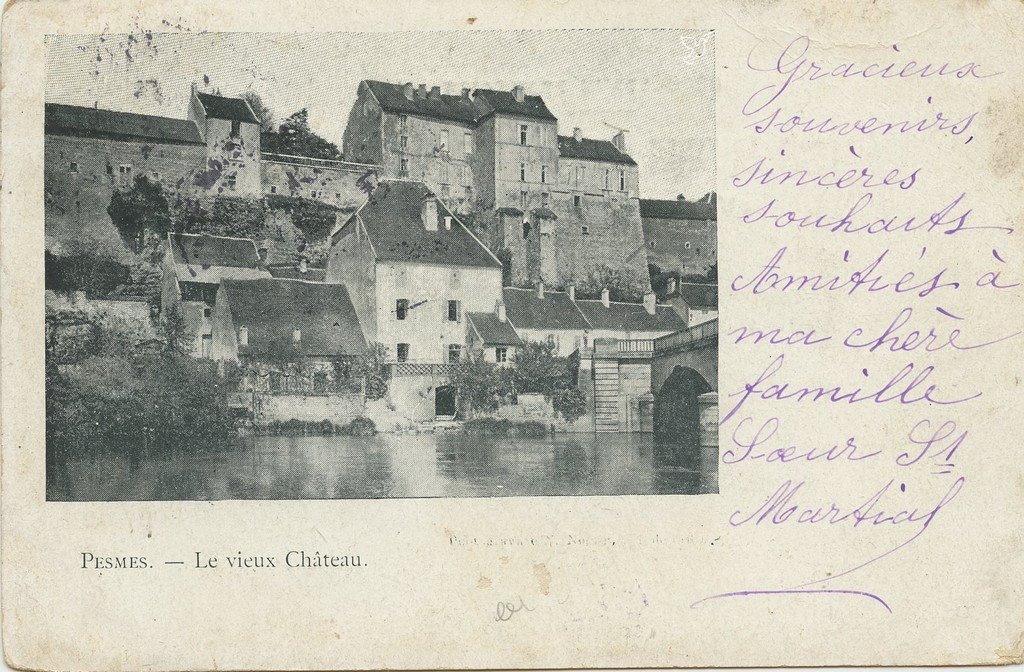 Gracieux
souvenirs,
sincères
souhaits
Amitiés à
ma chère
famille
Sœur St
Martial
PESMES. — Le vieux Château.